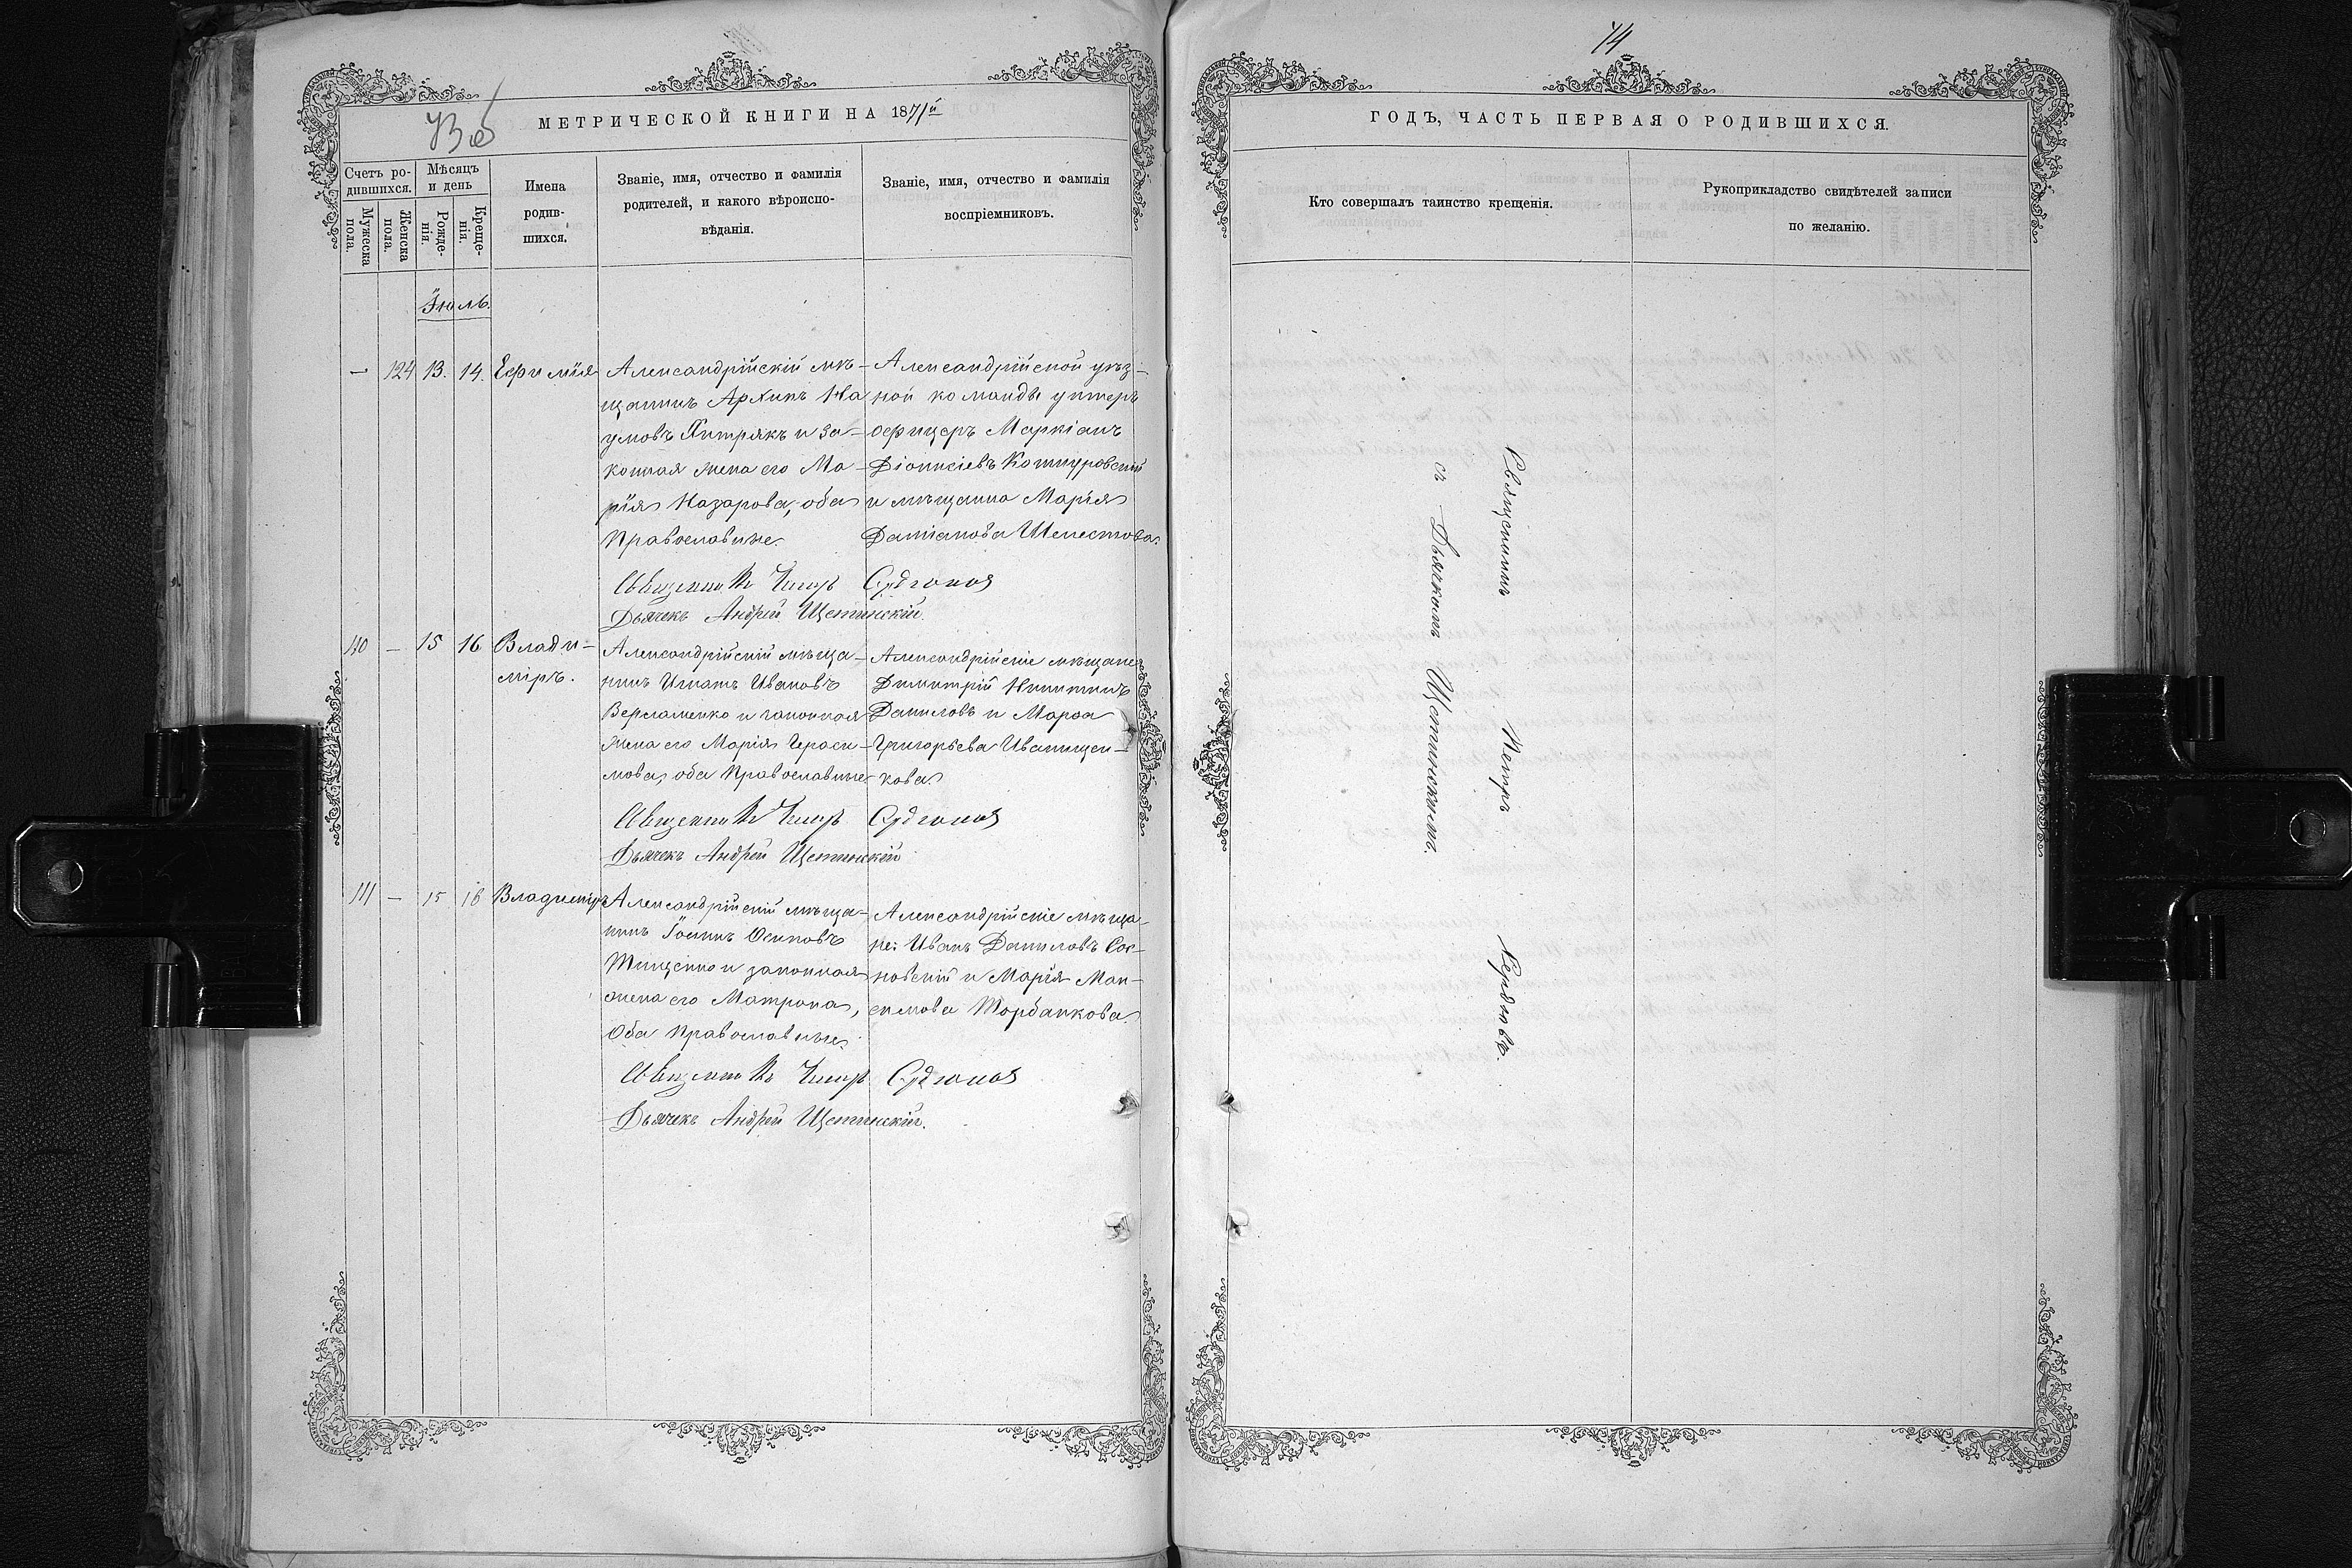 МЕТРИЧЕСКОЙ КНИГИ НА 1871й
Счетъ ро-
дившихся.
Мужеска
пола.
Женска
пола.
Мѣсяцъ
и день
Рожде-
нія.
Креще-
нія.
Имена
родив-
шихся.
Званіе, имя, отчество и фамилія
родителей, и какого вѣроиспо-
вѣданія.
Званіе, имя, отчество и фамилія
воспріемниковъ.
Іюль.
— 124 13. 14. Ефимія
Александрійскій мѣ-
щанинъ Архипъ На
умовъ Хитрякъ и за-
конная жена его Ма-
рія Назарова, оба
Православные.
Александрійской уѣзд-
ной команды унтеръ
офицеръ Маркіанъ
Діонисіевъ
и мѣщанка Марія
Даміанова Шелестова.
Священникъ Петръ
Дьячекъ Андрей Щетинскій.
110 — 15 16 Влади-
міръ.
Александрійскій мѣща-
нинъ Игнатъ Ивановъ
и законная
жена его Марія Гераси-
мова, оба Православные
Александрійскіе мѣщане
Димитрій Никитинъ
Даниловъ и Марфа
Григорьева Иванищен-
кова
Священникъ Петръ
Дьячекъ Андрей Щетинскій
111 — 15 16 Владиміръ
Александрійскій мѣща-
нинъ Іоаннъ Осиповъ
Тищенко и законная
жена его Матрона,
Оба Православные.
Александрійскіе мѣща-
не: Иванъ Даниловъ Сос-
новскій и Марія Мак-
симова Торбанкова.
Священникъ Петръ
Дьячекъ Андрей Щетинскій.
14
ГОДЪ, ЧАСТЬ ПЕРВАЯ О РОДИВШИХСЯ.
Кто совершалъ таинство крещенія.
Рукоприкладство свидѣтелей записи
по желанію.
Священникъ Петръ
съ Дьячкомъ Щетинскимъ.